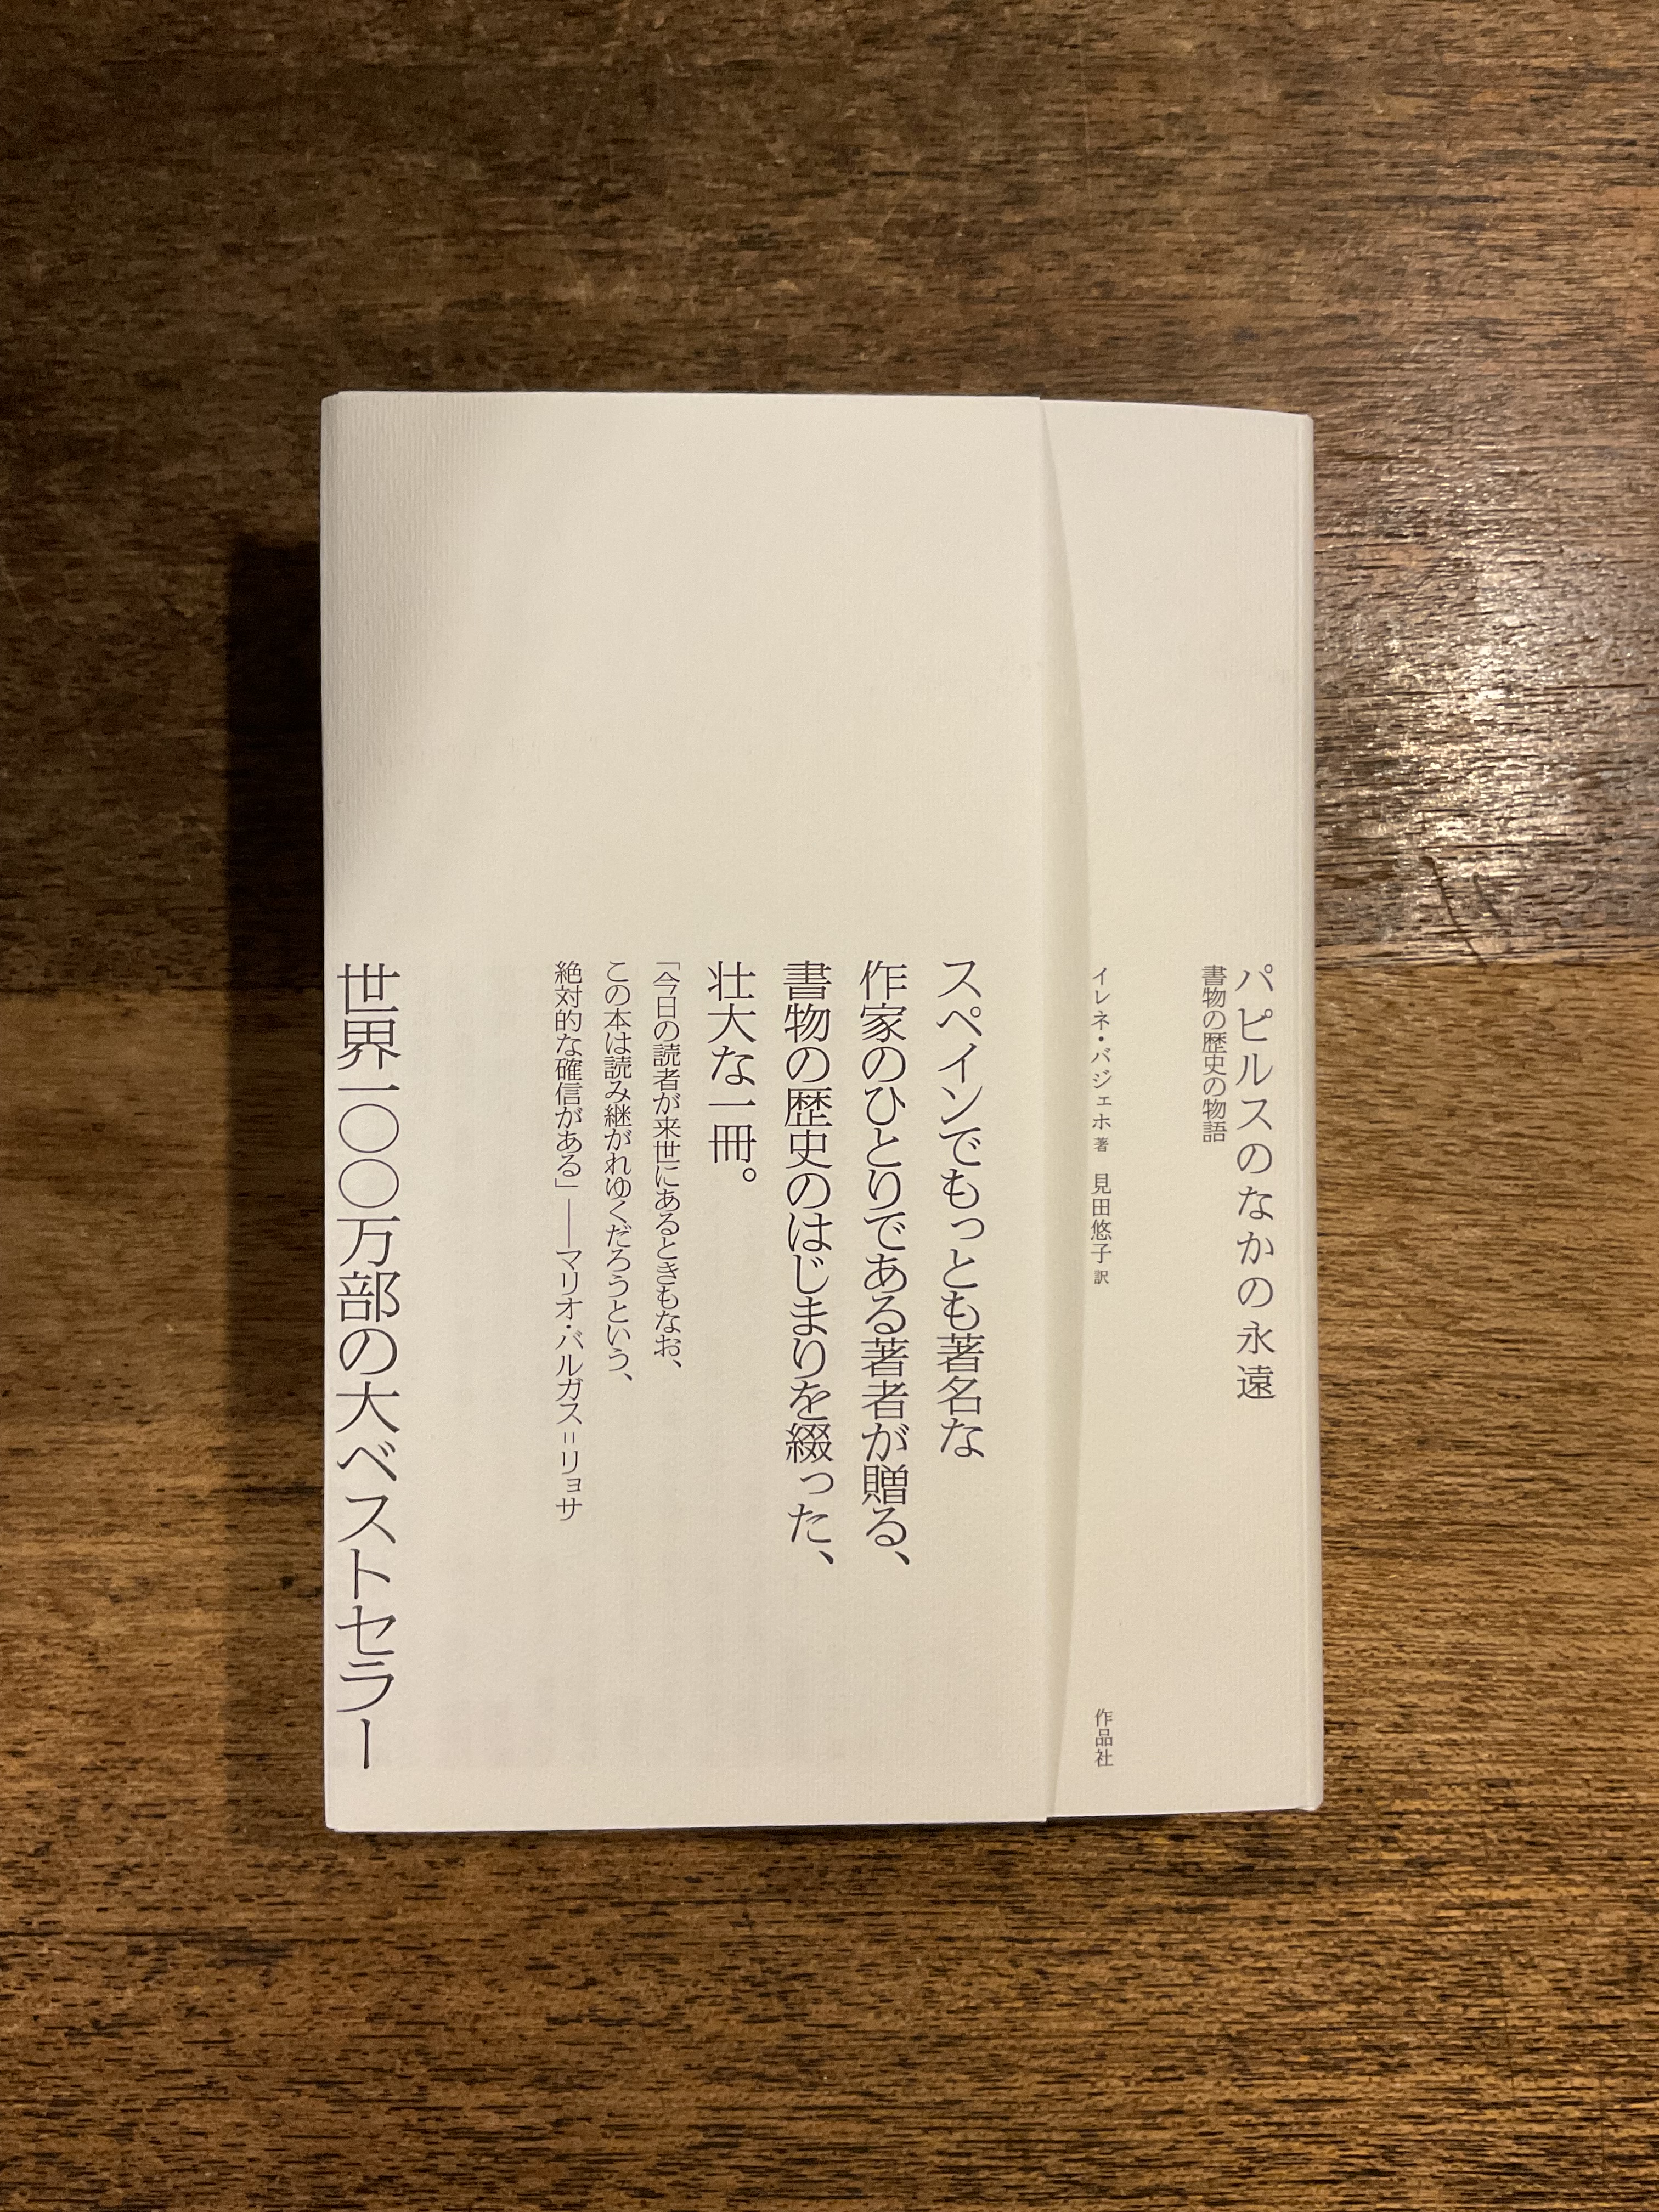 パピルスのなかの永遠
書物の歴史の物語
イレネ・バジェホ 著 見田悠子 訳
作品社
スペインでもっとも著名な
作家のひとりである著者が贈る、
書物の歴史のはじまりを綴った、
壮大な一冊。
「今日の読者が来世にあるときもなお、
この本は読み継がれゆくだろうという、
絶対的な確信がある」——マリオ・バルガス＝リョサ
世界一〇〇万部の大ベストセラー